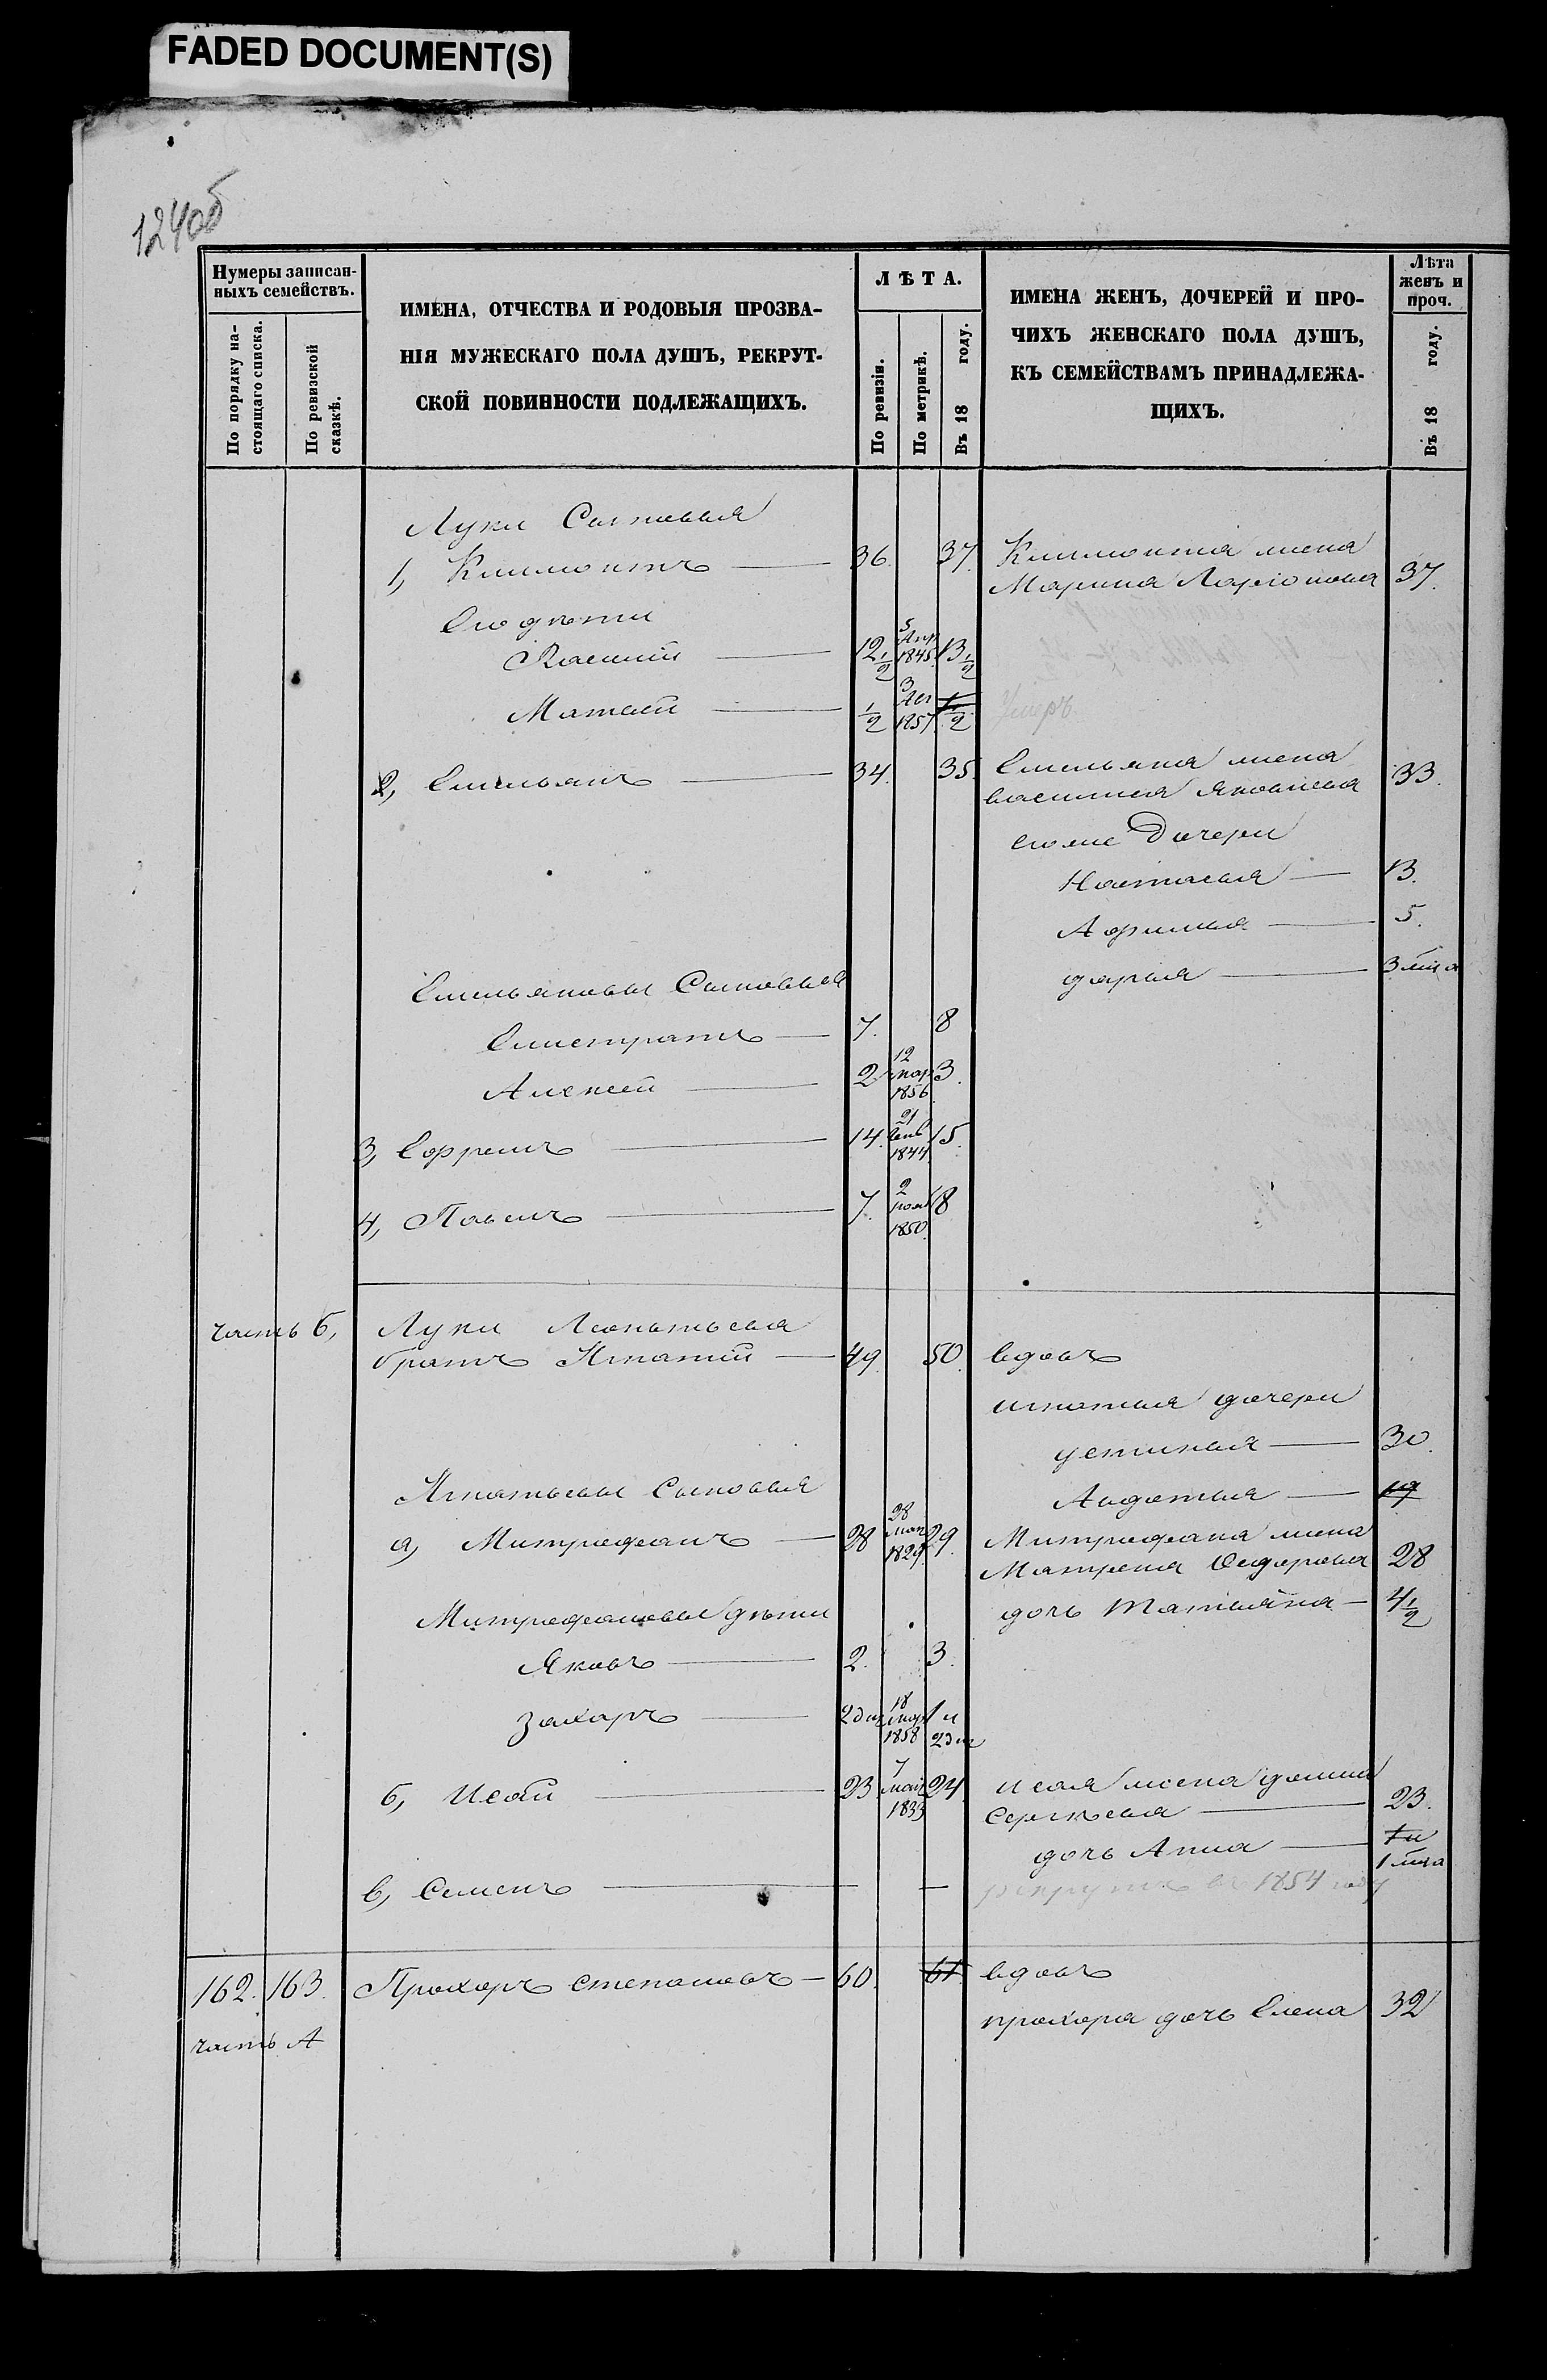 FADED DOCUMENT(S)
124об
Нумеры записан-
ныхъ семействъ.
По порядку на-
стоящаго списка.
По ревизской
сказкѣ.
ИМЕНА, ОТЧЕСТВА И РОДОВЫЯ ПРОЗВА-
НІЯ МУЖЕСКАГО ПОЛА ДУШЪ, РЕКРУТ-
СКОЙ ПОВИННОСТИ ПОДЛЕЖАЩИХЪ.
ЛѢТА.
По ревизіи.
По метрикѣ.
Въ 18 году.
ИМЕНА ЖЕНЪ, ДОЧЕРЕЙ И ПРО-
ЧИХЪ ЖЕНСКАГО ПОЛА ДУШЪ,
КЪ СЕМЕЙСТВАМЪ ПРИНАДЛЕЖА-
ЩИХЪ.
Лѣта
женъ и
проч.
Въ 18 году.
Луки Сыновья
1, Климонтъ 36. 37. Климонта жена
Марина Ларіонова 37.
Его дѣти
12 1/2 5 Апр 1845. 13 1/2
Матвей 1/2 3 1857 1 1/2 Умеръ
2, Емельянъ 34. 35. Емельяна жена
Василиса Яковлева 33.
его же Дочери
Настасья 13.
Афимья 5.
дарья 3 мца
Емельяновы Сыновья
Елистратъ 7. 8
Алексей 2 12 мар 1856 3.
3, Ефремъ 14. 21 Генв 1844 15.
4, Павелъ 7. 2 1850. 8
часть б, Луки Леонтьева
братъ Игнатій 49. 50. вдовъ
игнатья дочери
устинья 30.
Авдотья 19
Игнатьевы Сыновья
а, Митрофанъ 28 28 мар 1829. 29. Митрофана жена
Матрена Сидорова 28
Митрофановы дѣти дочь татьяна 4 1/2
Яковъ 2. 3.
Захаръ 2 дн 18 мар 1858 1 и 2 дн
б, Исай 23 7 май 1833 24. исая жена домна
Сергѣева 23.
дочь Анна 1 и
1 мца
в, Семенъ рекрутъ въ 1854 году
162. 163. Прохоръ степановъ 60. 61. вдовъ
прохора дочь Елена 32
часть А